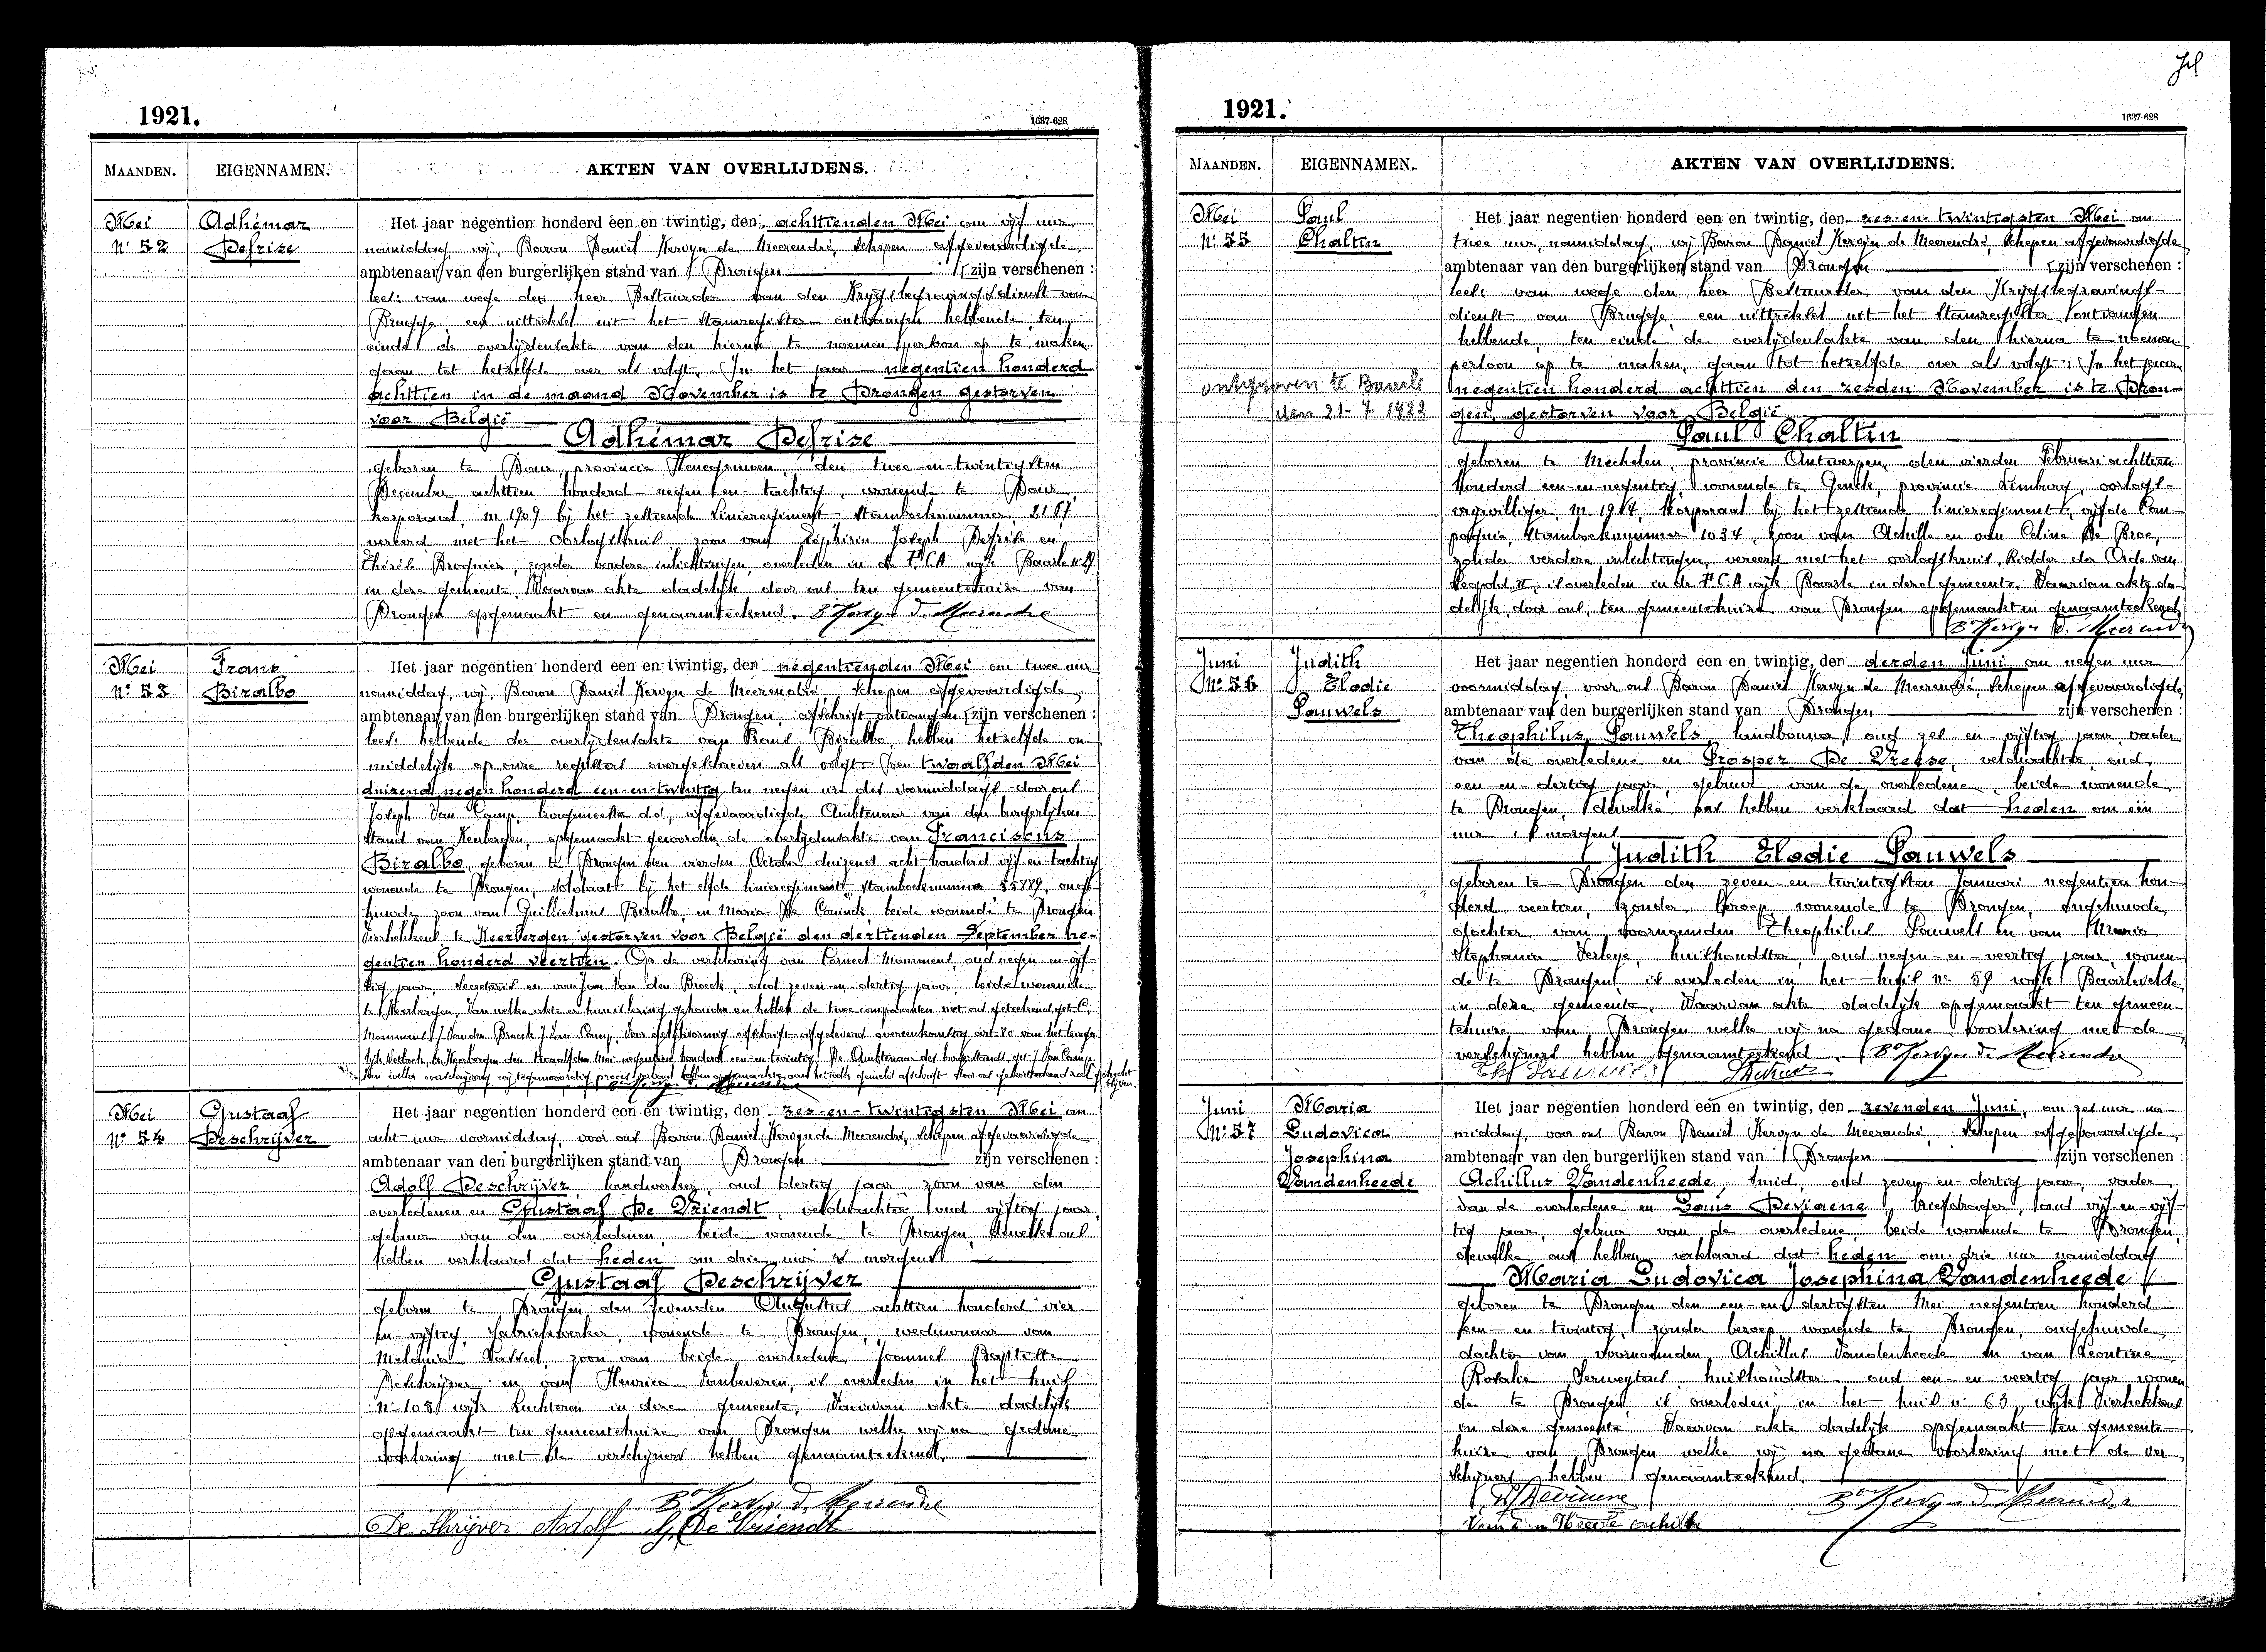 1921.
1637-628
MAANDEN. EIGENNAMEN. AKTEN VAN OVERLIJDENS.
Mei
N° 52
Adhémar
Defrise
Het jaar negentien honderd één en twintig, den achttienden Mei om vijf uur
namiddag, wij, Baron Daniël Kervyn de Meerendré, Schepen afgevaardigde
ambtenaar van den burgerlijken stand van Drongen [zijn verschenen :
lees: van wege den heer Bestuurder van den Krijgsbegravingsdienst van
Brugge, een uittreksel uit het Stamregister ontvangen hebbende, ten
einde de overlijdensakte van den hierna te noemen persoon op te maken
gaan tot hetzelfde over als volgt. In het jaar negentien honderd
achttien in de maand November is te Drongen gestorven
voor België
Adhémar Defrise
geboren te Dour, provincie Henegouwen, den twee-en-twintigsten
December achttien honderd negen-en-tachtig, wonende te Dour,
korporaal, m 1909 bij het zestiende Linieregiment Stamboeknummer 2167
vereerd met het Oorlogskruis, zoon van Zéphirin Joseph Defrise en
Thérèse Brognier, zonder verdere inlichtingen, overleden in de wijk Baarle
in deze gemeente. Waarvan akte dadelijk door ons ten gemeentehuize van
Drongen opgemaakt en genaamteekend. Bon Kervyn d. Meerendre
Mei
N° 53
Frans
Biralbo
Het jaar negentien honderd één en twintig, den negentienden Mei om twee uur
namiddag, wij, Baron Daniël Kervyn de Meerendré, Schepen afgevaardigde
ambtenaar van den burgerlijken stand van Drongen, afschrift ontvangen [zijn verschenen :
lees: hebbende der overlijdensakte van Frans Biralbo, hebben hetzelfde on-
middelijk op onze registers overgeschreven als volgt. Den twaalfden Mei
duizend negen honderd een-en-twintig ten negen ure des voormiddags door ons
Joseph Van Camp, burgemeester d.d., afgevaardigde Ambtenaar van den burgerlijken
Stand van Keerbergen, opgemaakt geworden de overlijdensakte van Franciscus
Biralbo, geboren te Drongen den vierden October duizend acht honderd vijf-en-tachtig
wonende te Drongen, soldaat bij het elfde linieregiment Stamboeknummer 55889, onge-
huwde zoon van Guillielmus Biralbo, en Maria De Coninck, beide wonende te Drongen
Vierhekkens te Keerbergen, gestorven voor België den dertienden September ne-
gentien honderd veertien. Op de verklaring van Corneel Monument, oud negen-en-vijf-
tig jaar, secretaris en van Jan Van den Broeck, oud zeven-en-dertig jaar, beide wonende
te Keerbergen. Van welke akte
Mei
N° 54
Gustaaf
Deschrijver
Het jaar negentien honderd één en twintig, den zes-en-twintigsten Mei om
acht uur voormiddag, voor ons Baron Daniël Kervyn de Meerendré, Schepen afgevaardigde
ambtenaar van den burgerlijken stand van Drongen zijn verschenen :
Adolf Deschrijver, landwerker, oud dertig jaar, zoon van den
overledenen en Gustaaf De Vriendt, veldwachter, oud vijftig jaar,
gebuur van den overledenen, beide wonende te Drongen, dewelke ons
hebben verklaard dat heden om drie uur 's morgens
Gustaaf Deschrijver
geboren te Drongen den zevenden Augustus achttien honderd vier
en vijftig, fabriekwerker, wonende te Drongen, weduwnaar van
Melanie Vasseel, zoon van beide overledene Joannes Baptiste
Deschrijver en van Henrica Vanbeveren, is overleden in het huis
N° 108 wijk Luchteren in deze gemeente. Waarvan akte dadelijk
opgemaakt ten gemeentehuize van Drongen welke wij na gedane
voorlezing met de verschijners hebben genaamteekend.
Bon Kervyn d. Meerendre
De Shrijver Adolf G. De Vriendt
1921.
1637-628
MAANDEN. EIGENNAMEN. AKTEN VAN OVERLIJDENS.
Mei
N° 55
Paul
Chaltin
ontgraven te Baarle
den 21-7 1922
Het jaar negentien honderd één en twintig, den zes-en-twintigsten Mei om
twee uur, namiddag, wij Baron Daniël Kervyn de Meerendré, Schepen afgevaardigde
ambtenaar van den burgerlijken stand van Drongen [zijn verschenen :
lees: van wege den heer Bestuurder van den Krijgsbegravings-
dienst van Brugge, een uittreksel uit het Stamregister ontvangen
hebbende, ten einde de overlijdensakte van den hierna te noemen
persoon op te maken, gaan tot hetzelfde over als volgt: In het jaar
negentien honderd achttien den zesden November is te Dron-
gen, gestorven voor België
Paul Chaltin
geboren te Mechelen, provincie Antwerpen, den vierden Februari achttien
honderd een-en-negentig, wonende te Genck, provincie Limburg, oorlogs-
vrijwilliger, m. 1914, Korporaal bij het zestiende linieregiment, vijfde Com-
pagnie, Stamboeknummer 1034, zoon van Achille en van Celine De Broe,
zonder verdere inlichtingen, vereerd met het oorlogskruis, Ridder der Orde van
Leopold II, is overleden in de wijk Baarle in deze gemeente. Waarvan akte da-
delijk door ons, ten gemeentehuize van Drongen opgemaakt en genaamteekend.
Bon Kervyn d. Meerendre
Juni
N° 56
Judith
Elodie
Pauwels
Het jaar negentien honderd één en twintig, den derden Juni, om negen uur
voormiddag, voor ons Baron Daniël Kervyn de Meerendré, Schepen afgevaardigde,
ambtenaar van den burgerlijken stand van Drongen zijn verschenen :
Theophilus Pauwels, landbouwer, oud zes-en-vijftig jaar, vader
van de overledene en Prosper De Vreese, veldwachter, oud
een-en-dertig jaar, gebuur van de overledene, beide wonende
te Drongen, dewelke ons hebben verklaard dat heden om één
uur 's morgens
Judith Elodie Pauwels
geboren te Drongen den zeven-en-twintigsten Januari negentien hon-
derd veertien, zonder beroep, wonende te Drongen, ongehuwde
dochter van voornoemden Theophilus Pauwels en van Maria
Stephania Verleye, huishoudster, oud negen-en-veertig jaar, wonen-
de te Drongen, is overleden in het huis n° 59 wijk Baarlevelde
in deze gemeente. Waarvan akte dadelijk opgemaakt ten gemeen-
tehuize van Drongen welke wij na gedane voorlezing met de
verschijners hebben genaamteekend. Bon Kervyn d. Meerendre
Juni
N° 57
Maria
Ludovica
Josephina
Vandenheede
Het jaar negentien honderd één en twintig, den zevenden Juni, om zes uur na-
middag, voor ons Baron Daniël Kervyn de Meerendré, Schepen afgevaardigde,
ambtenaar van den burgerlijken stand van Drongen zijn verschenen :
Achillus Vandenheede, smid, oud zeven-en-dertig jaar, vader
van de overledene en Louis Deviaene, briefdrager, oud vijf-en-vijf-
tig jaar, gebuur van de overledene, beide wonende te Drongen,
dewelke ons hebben verklaard dat heden om drie uur namiddag
Maria Ludovica Josephina Vandenheede
geboren te Drongen den een-en-dertigsten Mei negentien honderd
een-en-twintig, zonder beroep, wonende te Drongen, ongehuwde
dochter van voornoemden Achillus Vandenheede en van Leontine
Rosalie Verweytens, huishoudster, oud een-en-veertig jaar, wonen
de te Drongen, is overleden in het huis n° 63 wijk Vierhekkens
in deze gemeente. Waarvan akte dadelijk opgemaakt ten gemeente
huize van Drongen welke wij na gedane voorlezing met de ver
schijners hebben genaamteekend.
Bon Kervyn d. Meerendre